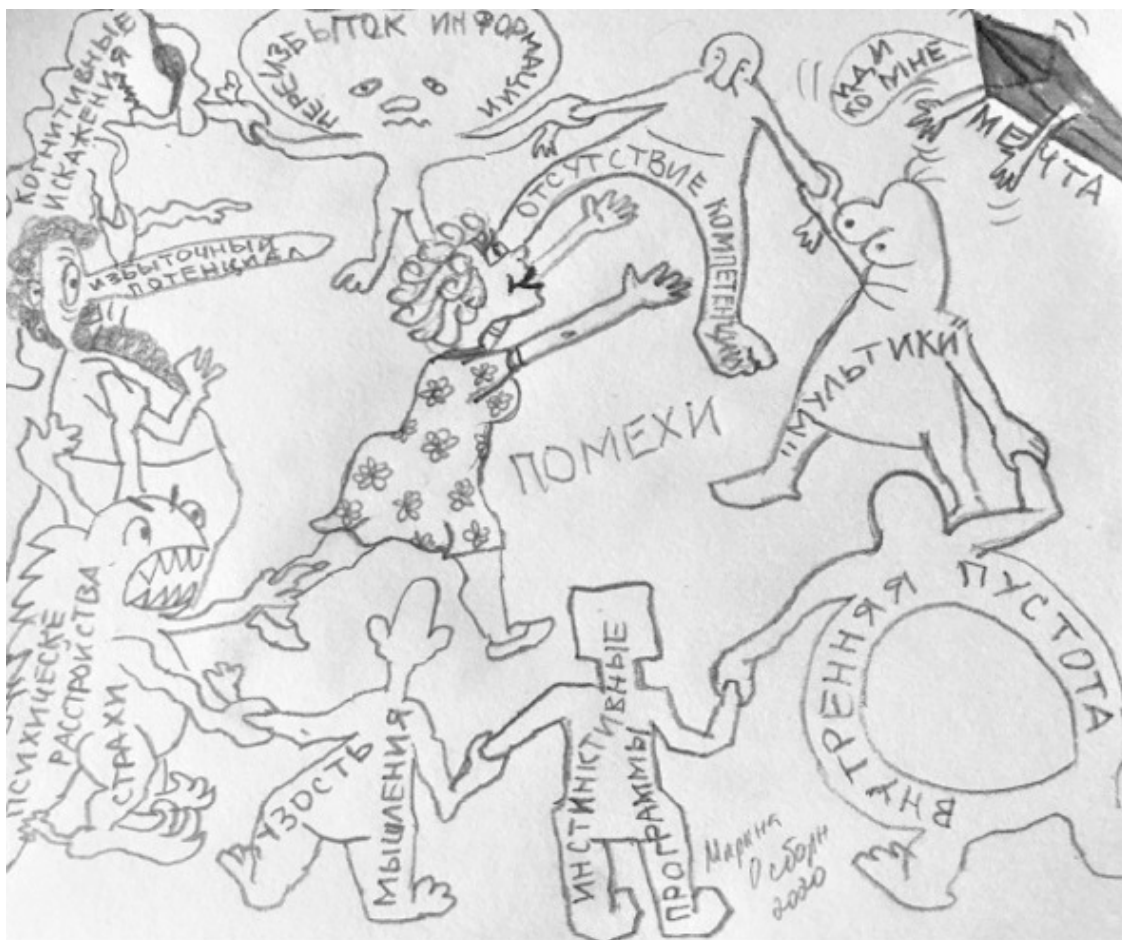 КОГНИТИВНЫЕ
ИСКАЖЕНИЯ
ПЕРЕИЗБЫТОК ИНФОРМАЦИИ
ИДИ
КО МНЕ
МЕЧТА
ОТСУТСТВИЕ КОМПЕТЕНЦИИ
ИЗБЫТОЧНЫЙ
ПОТЕНЦИАЛ
"МУЛЬТИКИ"
ПОМЕХИ
ПСИХИЧЕСКЕ
РАССТРОЙСТВА
СТРАХИ
УЗОСТЬ
МЫШЛЕНИЯ
ИНСТИНКТИВНЫЕ
ПРОГРАММЫ
ВНУТРЕННЯЯ ПУСТОТА
Марина
Осборн
2020